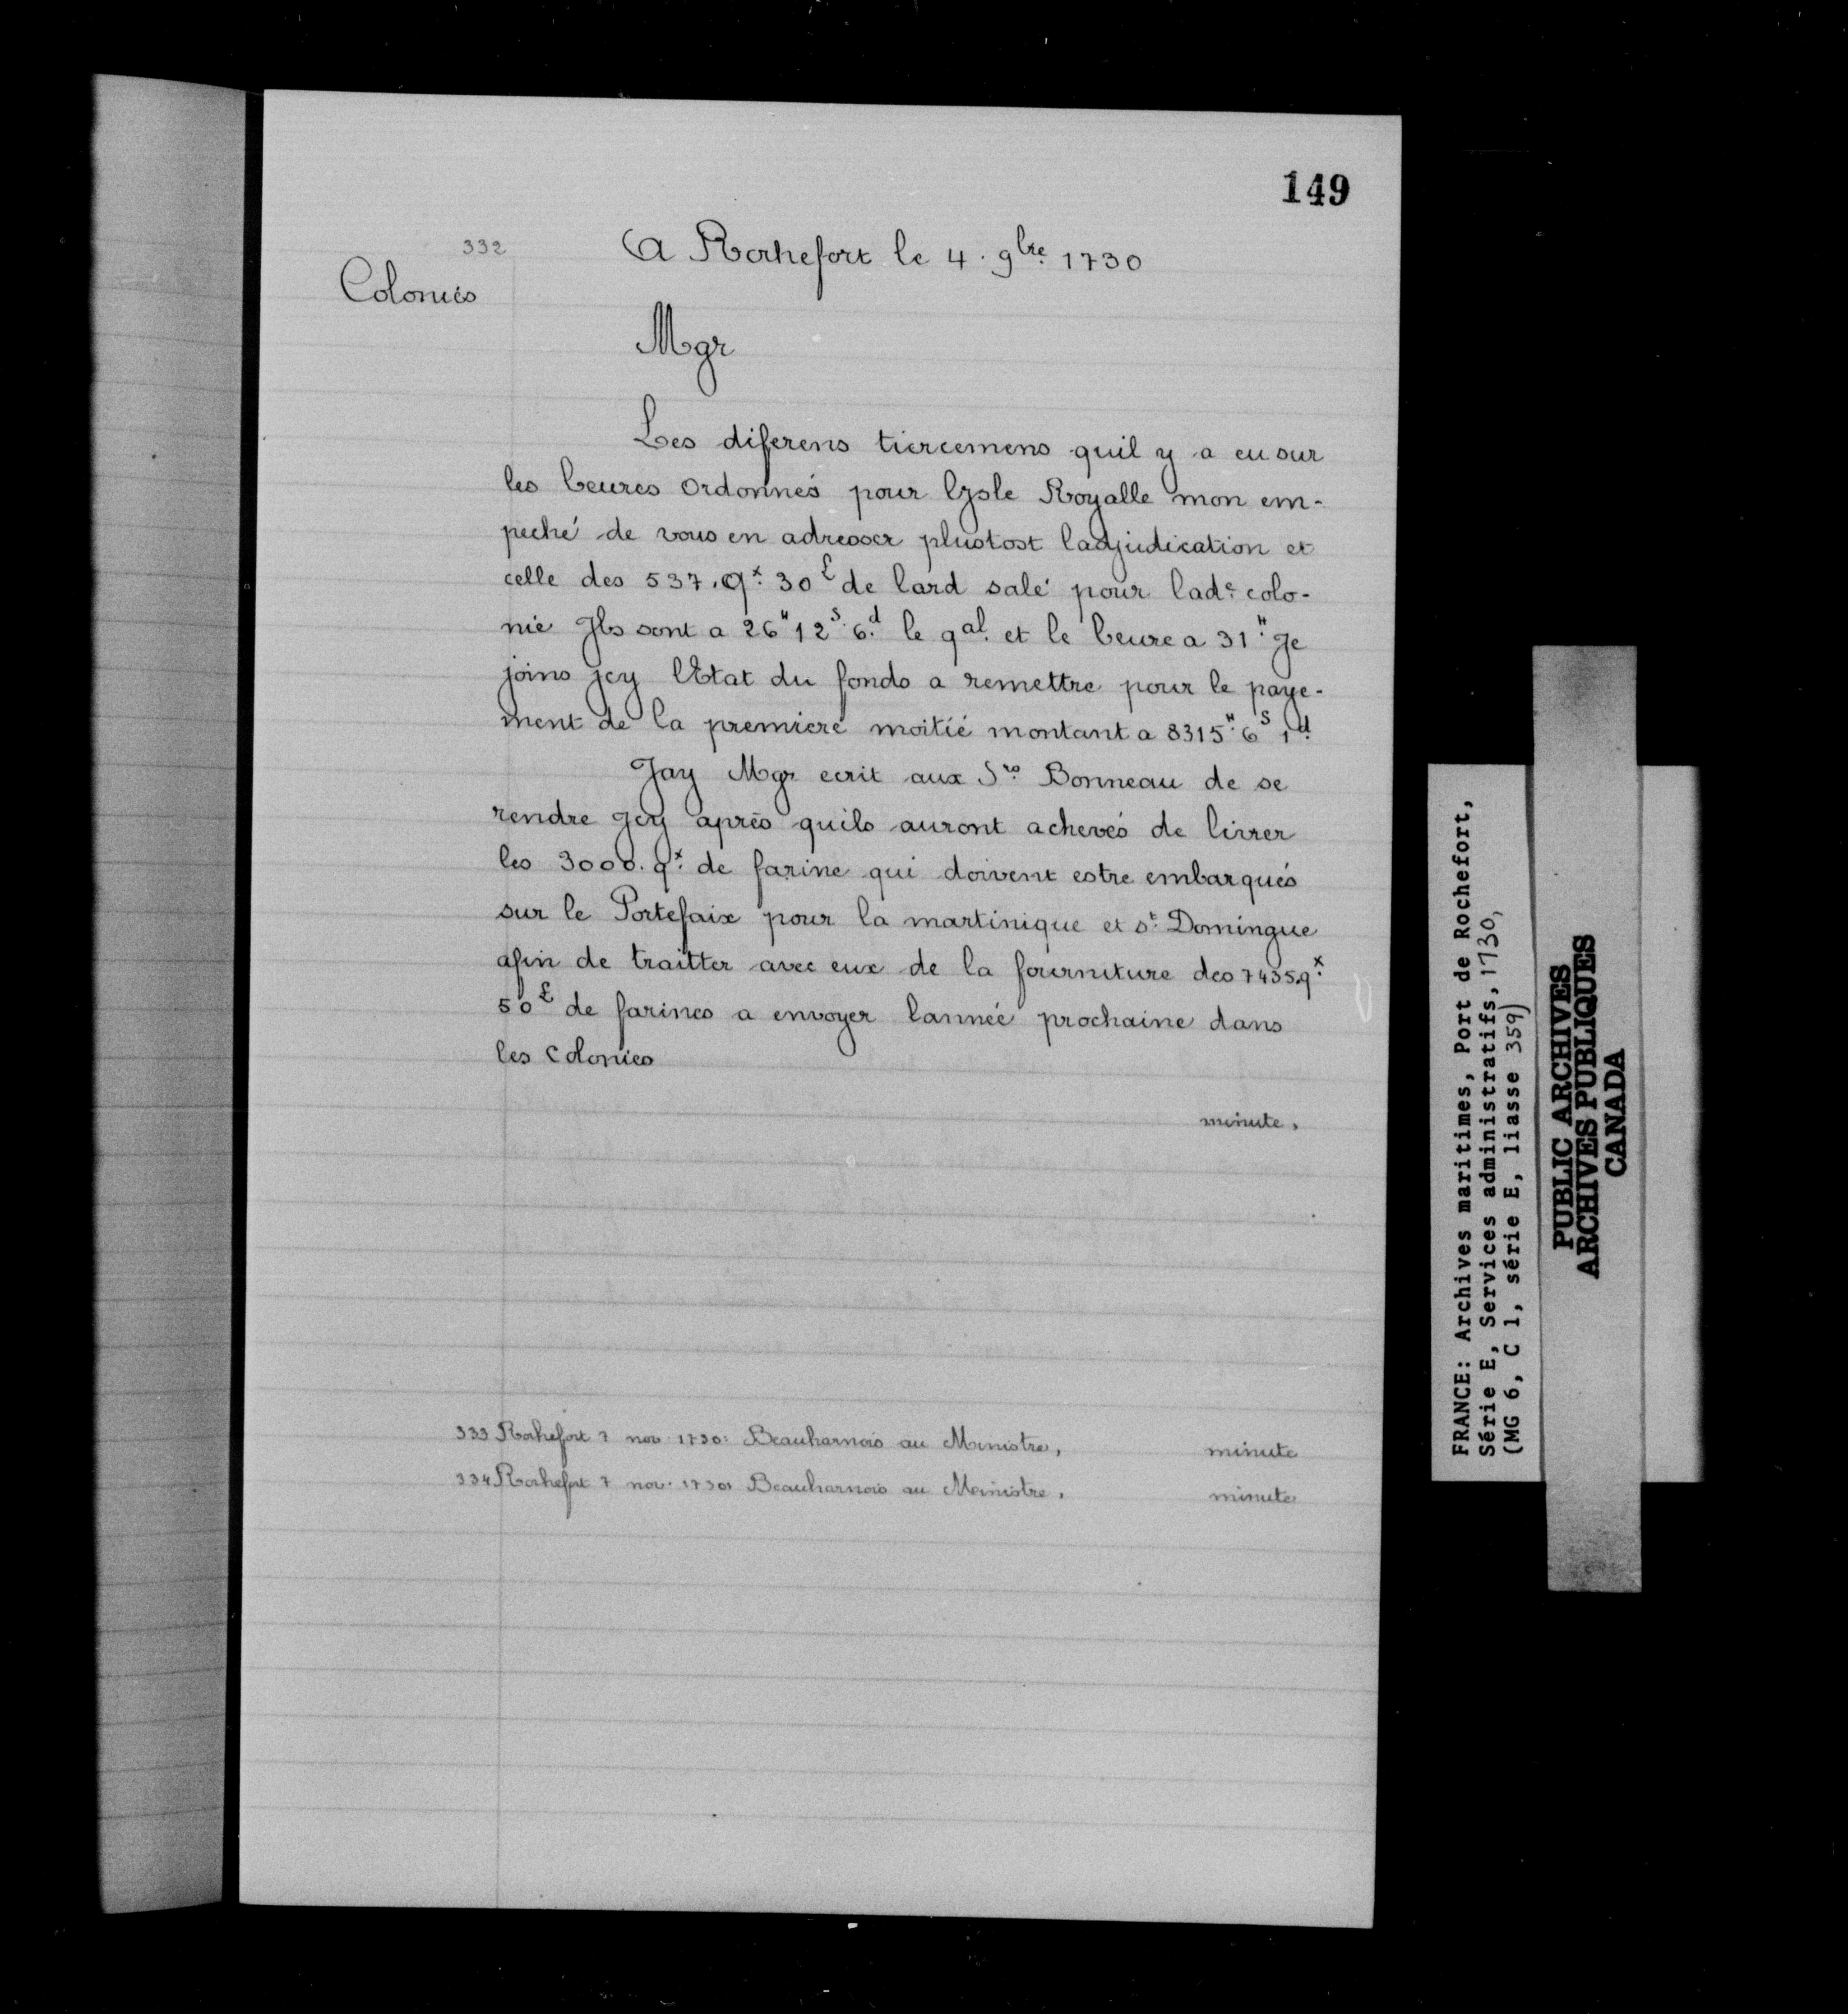 149
332
A Rochefort le 4. 9bre 1730
Colonies
Mgr
Les diferens tiercemens quil y a eu sur
les beures ordonnés pour lysle Royalle mon em-
peché de vous en adresser plustost ladjudication et
celle des 537. qx. 30£ de lard salé pour lade. colo-
nie Jls sont a 26" 12s. 6.d le qal. et le beure a 31". Je
joins jcy lEtat du fonds a remettre pour le paye-
ment de la premiere moitié montant a 8315". 6s 1d.
Jay Mgr ecrit aux Srs. Bonneau de se
rendre Jcy après quils auront achevés de livrer
les 3000. qx. de farine qui doivent estre embarqués
sur le Portefaix pour la martinique et st. Domingue
afin de traitter avec eux de la fourniture des 7435.qx.
50£ de farines a envoyer lannée prochaine dans
les Colonies
minute,
333 Rochefort 7 nov 1730: Beauharnois au Ministre, minute
334 Rochefort 7 nov. 1730 Beauharnois au Ministre, minute
FRANCE: Archives maritimes, Port de Rochefort,
Série E, Services administratifs, 1730,
(MG 6, C 1, série E, liasse 359)
PUBLIC ARCHIVES
ARCHIVES PUBLIQUES
CANADA